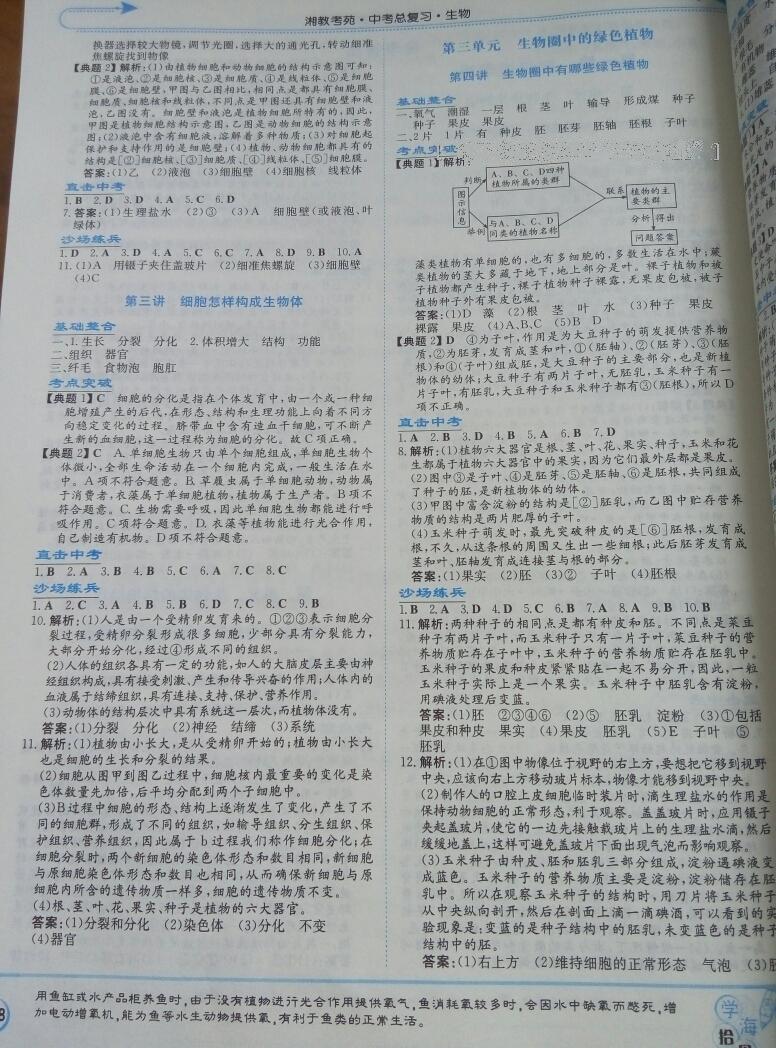 湘教考苑·中考总复习·生物
换器选择较大物镜,调节光圈,选择大的通光孔,转动细准
焦螺旋找到物像
【典题2】解析:(1)由植物细胞和动物细胞的结构示意图可知:
①是液泡、②是细胞核、③是细胞质、④是线粒体、⑤是细胞
膜、⑥是细胞壁,甲图与乙图相比,相同点是都具有细胞膜、
细胞质、细胞核和线粒体,不同点是甲图还具有细胞壁和液
泡,乙图没有。细胞壁和液泡是植物细胞所特有的,因此,
甲图是植物细胞结构示意图,乙图是动物细胞的结构示意
图;(2)液泡中含有细胞液,溶解着多种物质;(3)对细胞起
保护和支持作用的是细胞壁。(4)植物、动物细胞都具有的
结构是[②]细胞核、[③]细胞质、[④]线粒体、[⑤]细胞膜。
答案:(1)乙 (2)液泡 (3)细胞壁 (4)细胞核 线粒体
直击中考
1.B 2.D 3.D 4.A 5.C 6.D
7.答案:(1)生理盐水 (2)③ (3)A 细胞壁(或液泡、叶
绿体)
沙场练兵
1.D 2.A 3.D 4.A 5.C 6.C 7.A 8.D 9.B 10.A
11.(1)A 用镊子夹住盖玻片 (2)细准焦螺旋 (3)细胞壁
(4)C
第三讲 细胞怎样构成生物体
基础整合
一、1.生长 分裂 分化 2.体积增大 结构 功能
二、组织 器官
三、纤毛 食物泡 胞肛
考点突破
【典题1】C 细胞的分化是指在个体发育中,由一个或一种细
胞增殖产生的后代,在形态、结构和生理功能上向着不同方
向稳定变化的过程。脐带血中含有造血干细胞,可不断产
生新的血细胞,这一过程称为细胞的分化。故C项正确。
【典题2】C A.单细胞生物只由单个细胞组成,单细胞生物个
体微小,全部生命活动在一个细胞内完成,一般生活在水
中。A项不符合题意。B.草履虫属于单细胞动物,动物属
于消费者,衣藻属于单细胞植物,植物属于生产者。B项不
符合题意。C.生物需要呼吸,因此单细胞生物都能进行呼
吸作用。C项符合题意。D.衣藻等植物能进行光合作用,
自己制造有机物。D项不符合题意。
直击中考
1.B 2.A 3.B 4.B 5.C 6.A 7.C 8.C
沙场练兵
1.A 2.C 3.A 4.B 5.B 6.A 7.C 8.C 9.B
10.解析:(1)人是由一个受精卵发育来的。①②③表示细胞分
裂过程,受精卵分裂形成很多细胞,少部分具有分裂能力,
大部分开始分化,经过④形成不同的组织。
(2)人体的组织各具有一定的功能,如人的大脑皮层主要由神
经组织构成,具有接受刺激、产生和传导兴奋的作用;人体内的
血液属于结缔组织,具有连接、支持、保护、营养作用。
(3)动物体的结构层次中具有系统这一层次,而植物体没有。
答案:(1)分裂 分化 (2)神经 结缔 (3)系统
11.解析:(1)植物由小长大,是从受精卵开始的;植物由小长大
也是细胞的生长和分裂的结果。
(2)细胞从图甲到图乙过程中,细胞核内最重要的变化是染
色体数量先加倍,后平均分配到两个子细胞中。
(3)B过程中细胞的形态、结构上逐渐发生了变化,产生了不
同的细胞群,形成了不同的组织,如输导组织、分生组织、保
护组织、营养组织,因此属于b过程我们称作细胞分化;在
细胞分裂时,两个新细胞的染色体形态和数目相同,新细胞
与原细胞染色体形态和数目也相同,从而确保新细胞与原
细胞内所含的遗传物质一样多,细胞的遗传物质不变。
(4)根、茎、叶、花、果实、种子是植物的六大器官。
答案:(1)分裂和分化 (2)染色体 (3)分化 不变
(4)器官
第三单元 生物圈中的绿色植物
第四讲 生物圈中有哪些绿色植物
基础整合
一、氧气 潮湿 一层 根 茎 叶 输导 形成煤 种子
种子 果皮 果皮
二、2片 1片 有 种皮 胚 胚芽 胚轴 胚根 子叶
考点突破
【典题1】解析:
图示信息
判断
A、B、C、D四种
植物所属的类群
举例
与A、B、C、D
同类的植物名称
联系
植物的主
要类群
分析 得出
问题答案
藻类植物有单细胞的,也有多细胞的,多数生活在水中;蕨
类植物的茎大多藏于地下,地上部分是叶。裸子植物和被
子植物都产生种子,裸子植物种子裸露,无果皮包被,被子
植物种子外有果皮包被。
答案:(1)D 藻 (2)根 茎 叶 水 (3)种子 果皮
裸露 果皮 (4)A、B、C (5)B D
【典题2】D ④为子叶,作用是为大豆种子的萌发提供营养物
质,②为胚芽,发育成茎和叶,①(胚轴)、②(胚芽)、③(胚
根)和④(子叶)组成胚,是大豆种子的主要部分,也是新植
物体的幼体;大豆种子有两片子叶,无胚乳,玉米种子有一
片子叶,有胚乳,大豆种子和玉米种子都有③(胚根),所以D
项不正确。
直击中考
1.A 2.B 3.D 4.B 5.A 6.B 7.D
8.解析:(1)植物六大器官是根、茎、叶、花、果实、种子,玉米和花
生都属于植物六大器官中的果实,因为它们最外层都是果皮。
(2)图中③是子叶、④是胚芽、⑤是胚轴、⑥是胚根,共同组成
了种子的胚,是新植物体的幼体。
(3)甲图中富含淀粉的结构是[②]胚乳,而乙图中贮存营养
物质的结构是两片肥厚的子叶。
(4)玉米种子萌发时,最先突破种皮的是[⑥]胚根,发育成
根,不久,从这条根的周围又生出一些细根;此后胚芽发育成
茎和叶、胚轴发育成连接茎与根的部分。
答案:(1)果实 (2)胚 (3)② 子叶 (4)胚根
沙场练兵
1.B 2.A 3.D 4.D 5.C 6.B 7.A 8.A 9.B 10.B
11.解析:两种种子的相同点是都有种皮和胚。不同点是菜豆
种子有两片子叶,而玉米种子只有一片子叶,菜豆种子的营
养物质贮存在子叶中,玉米种子的营养物质贮存在胚乳中。
玉米种子的果皮和种皮紧紧贴在一起不易分开,因此,一粒
玉米种子实际上是一个果实。玉米种子中胚乳含有淀粉,
用碘液处理后变蓝。
答案:(1)胚 ②③④⑥ (2)⑤ 胚乳 淀粉 (3)①包括
果皮和种皮 果实 (4)果皮 胚乳 (5)E 子叶 ⑤
胚乳
12.解析:(1)在①图中物像位于视野的右上方,要想把它移到视野
中央,应该向右上方移动玻片标本,物像才能移到视野中央。
(2)制作人的口腔上皮细胞临时装片时,滴生理盐水的作用是
保持动物细胞的正常形态,利于观察。盖盖玻片时,应用镊子
夹起盖玻片,使它的一边先接触载玻片上的生理盐水滴,然后
缓缓地盖上,这样可避免盖玻片下面出现气泡而影响观察。
(3)玉米种子由种皮、胚和胚乳三部分组成,淀粉遇碘液变
成蓝色。玉米种子的营养物质主要是淀粉,淀粉储存在胚
乳中。所以在观察玉米种子的结构时,用刀片将玉米种子
从中央纵向剖开,然后在剖面上滴一滴碘酒,可以看到的实
验现象是:变蓝的是种子结构中的胚乳,未变蓝色的是种子
结构中的胚。
答案:(1)右上方 (2)维持细胞的正常形态 气泡 (3)胚
用鱼缸或水产品柜养鱼时,由于没有植物进行光合作用提供氧气,鱼消耗氧较多时,会因水中缺氧而憋死,增
加电动增氧机,能为鱼等水生动物提供氧,有利于鱼类的正常生活。
学海拾